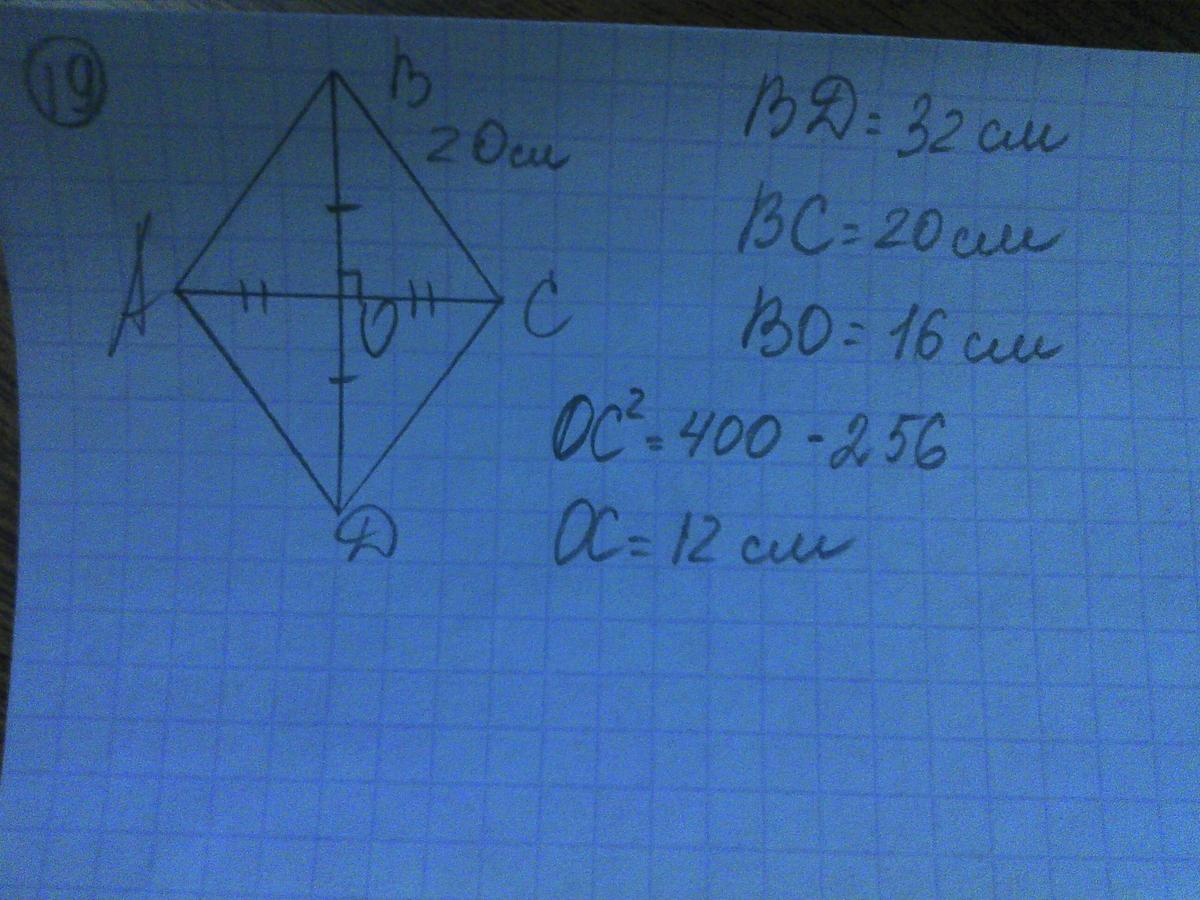 19
B
20см
A
O
C
D
BD = 32 см
BC = 20 см
BO = 16 см
OC² = 400 - 256
OC = 12 см